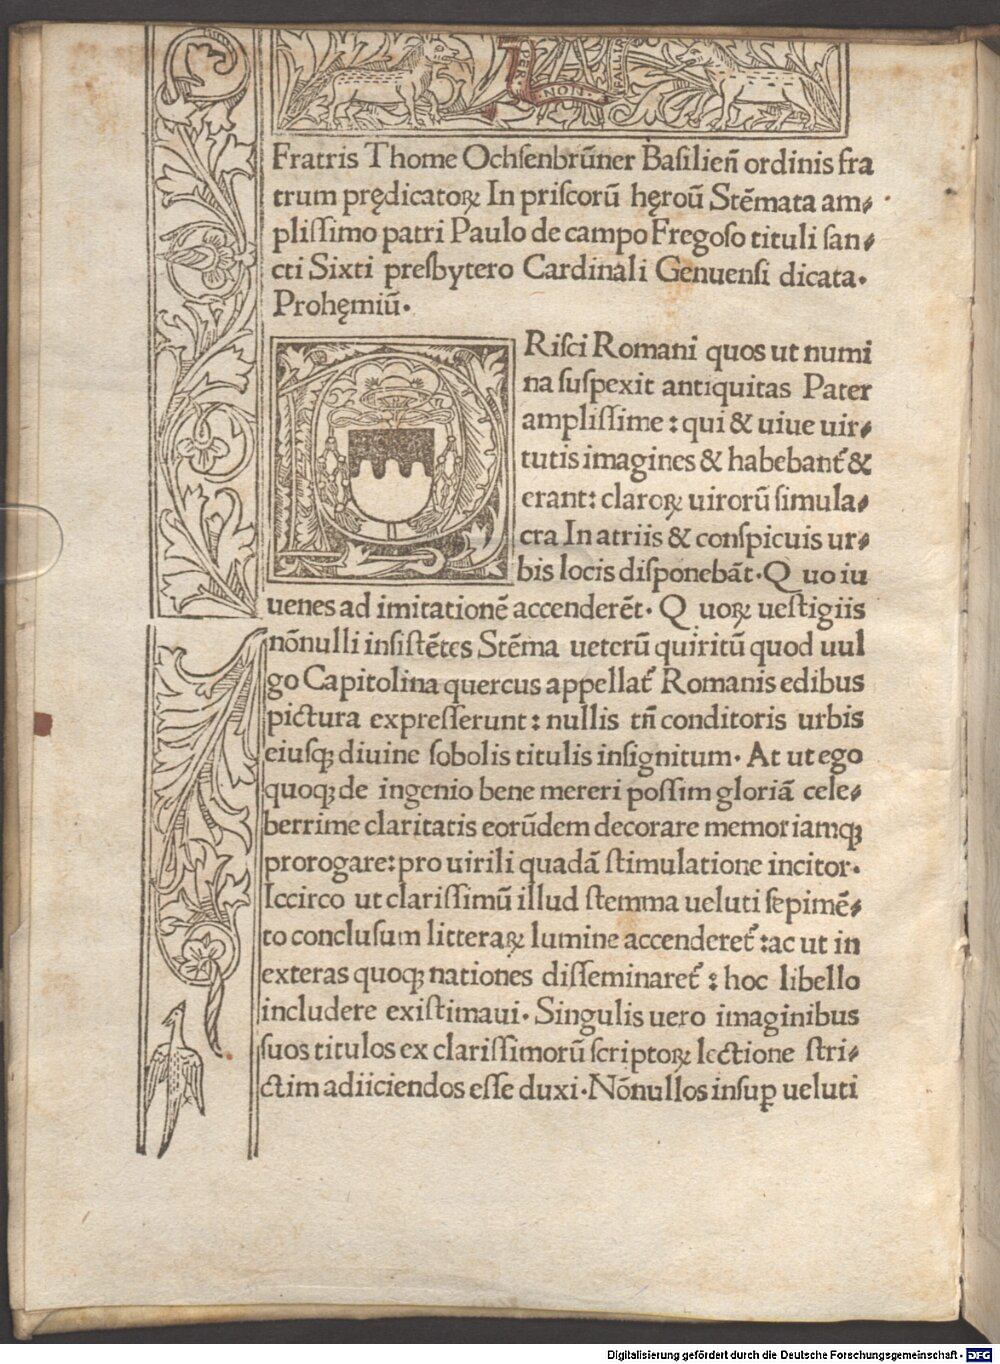 PER
NON
FALLIT
Fratris Thome Ochsenbrūner Basilieñ ordinis fra
trum prędicatoꝝ In priscorū hęroū Stēmata am⸗
plissimo patri Paulo de campo Fregoso tituli san⸗
cti Sixti presbytero Cardinali Genuensi dicata.
Prohęmiū.
Risci Romani quos ut numi
na suspexit antiquitas Pater
amplissime: qui & uiue uir⸗
tutis imagines & habebant᷑ &
erant: claroꝝ uirorū simula⸗
cra In atriis & conspicuis ur⸗
bis locis disponebāt. Q uo iu
uenes ad imitationē accenderēt. Q uoꝝ uestigiis
nōnulli insistētes Stēma ueterū quiritū quod uul
go Capitolina quercus appellat᷑ Romanis edibus
pictura expresserunt: nullis tñ conditoris urbis
eiusqꝫ diuine sobolis titulis insignitum. At ut ego
quoqꝫ de ingenio bene mereri possim gloriā cele⸗
berrime claritatis eorūdem decorare memoriamqꝫ
prorogare: pro uirili quadā stimulatione incitor.
Iccirco ut clarissimū illud stemma ueluti sepimē⸗
to conclusum litteraꝝ lumine accenderet᷑: ac ut in
exteras quoqꝫ nationes disseminaret᷑: hoc libello
includere existimaui. Singulis uero imaginibus
suos titulos ex clarissimorū scriptoꝝ lectione stri⸗
ctim adiiciendos esse duxi. Nōnullos insuꝑ ueluti
Digitalisierung gefördert durch die Deutsche Forschungsgemeinschaft - DFG